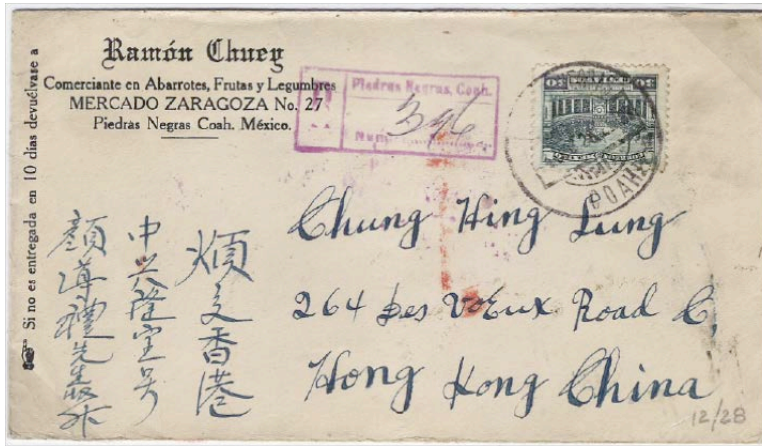 Si no es entregada en 10 dias devuélvase a
Ramón Chuey
Comerciante en Abarrotes, Frutas y Legumbres
MERCADO ZARAGOZA No. 27
Piedras Negras Coah. México.
R
Piedras Negras, Coah.
Num. 396
COAH
Chung Hing Lung
264 Des Voeux Road C,
Hong Kong China
煩交香港
中兴隆宝号
顏 禮先生收
12/28